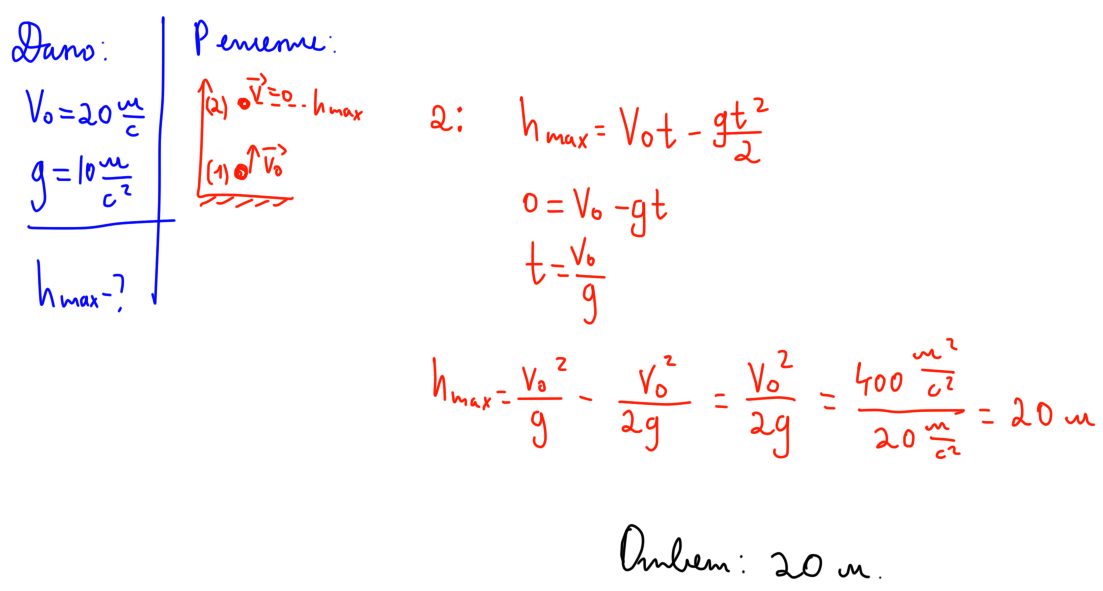 Дано:
V₀ = 20 м/с
g = 10 м/с²
h max - ?
Решение:
(2) V⃗ = 0 - h max
(1) V⃗₀
2: h max = V₀t - gt²/2
0 = V₀ - gt
t = V₀/g
h max = V₀²/g - V₀²/2g = V₀²/2g = 400 м²/с² / 20 м/с² = 20 м
Ответ: 20 м.